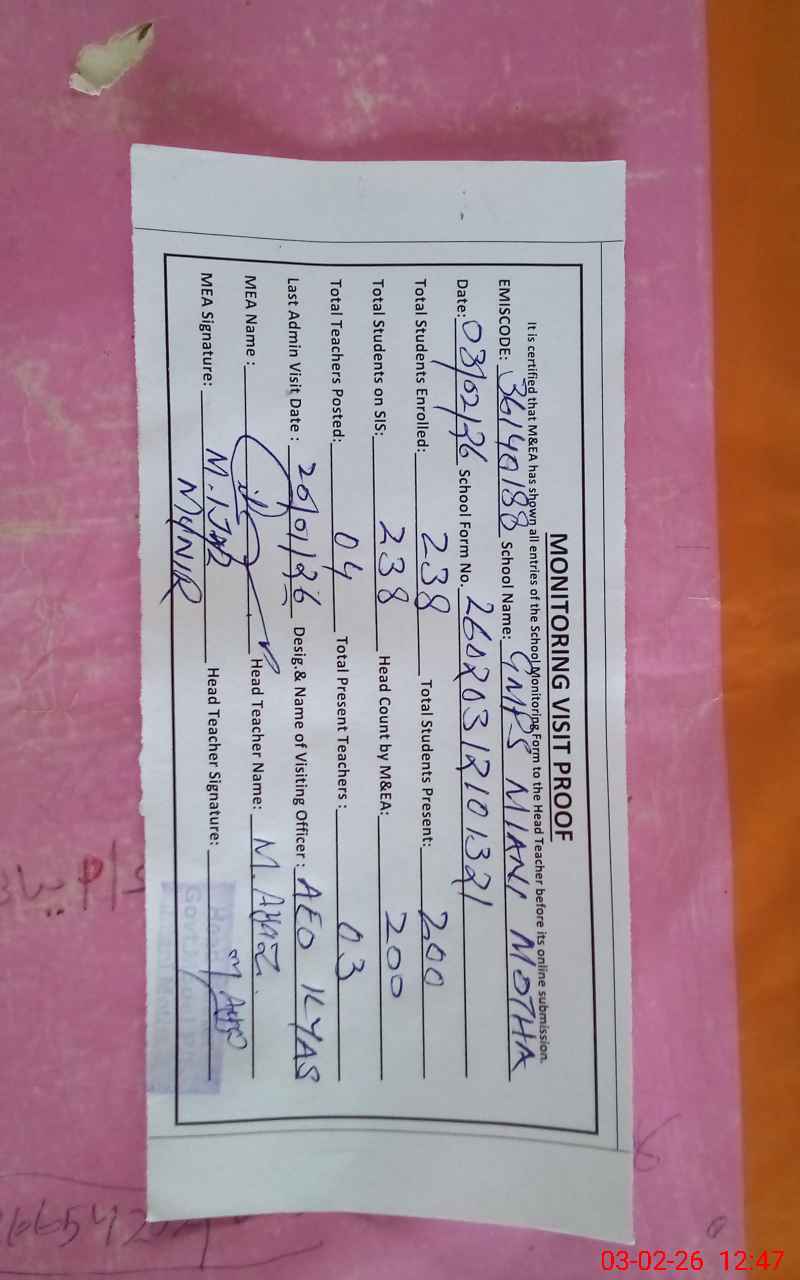 MONITORING VISIT PROOF
It is certified that M&EA has shown all entries of the School Monitoring Form to the Head Teacher before its online submission.
EMISCODE: 36140188 School Name: GMPS MIANI MOTHA
Date: 03/02/26 School Form No. 26020312101321
Total Students Enrolled: 238 Total Students Present: 200
Total Students on SIS: 238 Head Count by M&EA: 200
Total Teachers Posted: 04 Total Present Teachers : 03
Last Admin Visit Date : 20/01/26 Desig.& Name of Visiting Officer : AEO ILYAS
MEA Name : Head Teacher Name: M.
MEA Signature: M. Head Teacher Signature:
MUNIR
03-02-26 12:47